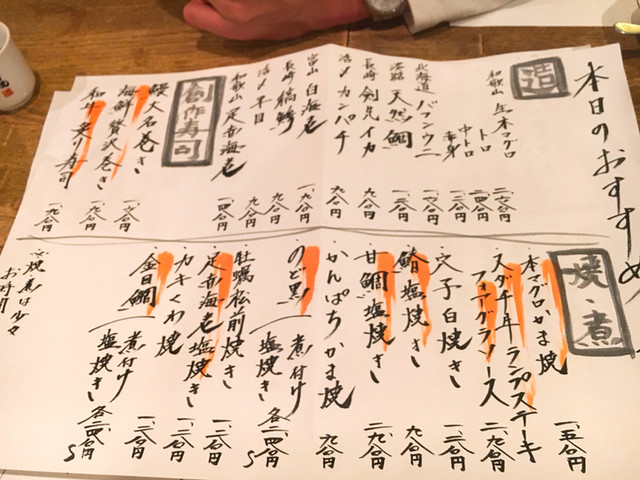 本日のおすすめ
造
和歌山 生本マグロ
トロ 二、六〇〇円
中トロ 二、四〇〇円
赤身
北海道 バフンウニ
淡路 天然鯛
長崎 剣先イカ 九〇〇円
活〆 カンパチ 九〇〇円
富山 白海老 一、九〇〇円
長崎 縞鯵 九〇〇円
活〆 平目 九〇〇円
和歌山 足赤海老 一、四〇〇円
創作寿司
鰻大名巻き 一、六〇〇円
海鮮贅沢巻き 一、九〇〇円
和牛炙り寿司 一、九〇〇円
焼・煮
本マグロかま焼 一、五〇〇円
スダチ牛ランプステーキ
フォアグラソース 二、九〇〇円
穴子白焼き 一、二〇〇円
鰆塩焼き 九〇〇円
甘鯛塩焼き 二、九〇〇円
かんぱちかま焼 九〇〇円
のど黒 煮付け 塩焼き 各二、四〇〇円〜
牡蠣松前焼き 一、二〇〇円
足赤海老塩焼き 一、二〇〇円
カキくわ焼 一、二〇〇円
金目鯛 煮付け 塩焼き 各二、四〇〇円〜
焼・煮は少々
お時間